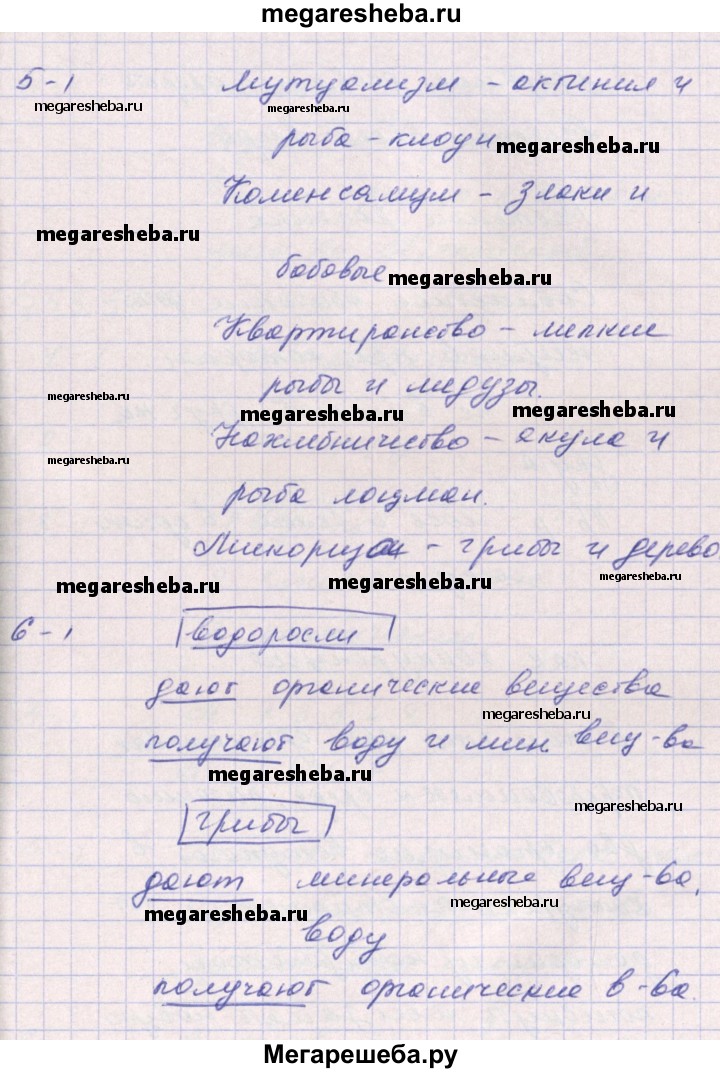 megaresheba.ru
5-1 Мутуализм - актиния и
megaresheba.ru megaresheba.ru
рыба-клоун megaresheba.ru
Коменсализм - злаки и
megaresheba.ru
бобовые megaresheba.ru
Квартиранство - мелкие
рыбы и медузы.
megaresheba.ru megaresheba.ru megaresheba.ru
Нахлебничество - акула и
megaresheba.ru
рыба лоцман.
Микориза - грибы и дерево.
megaresheba.ru megaresheba.ru megaresheba.ru
6-1 водоросли
дают органические вещества
megaresheba.ru
получают воду и мин. вещ-ва
megaresheba.ru
грибы megaresheba.ru
дают минеральные вещ-ва,
megaresheba.ru megaresheba.ru
воду
получают органические в-ва.
Мегарешеба.ру